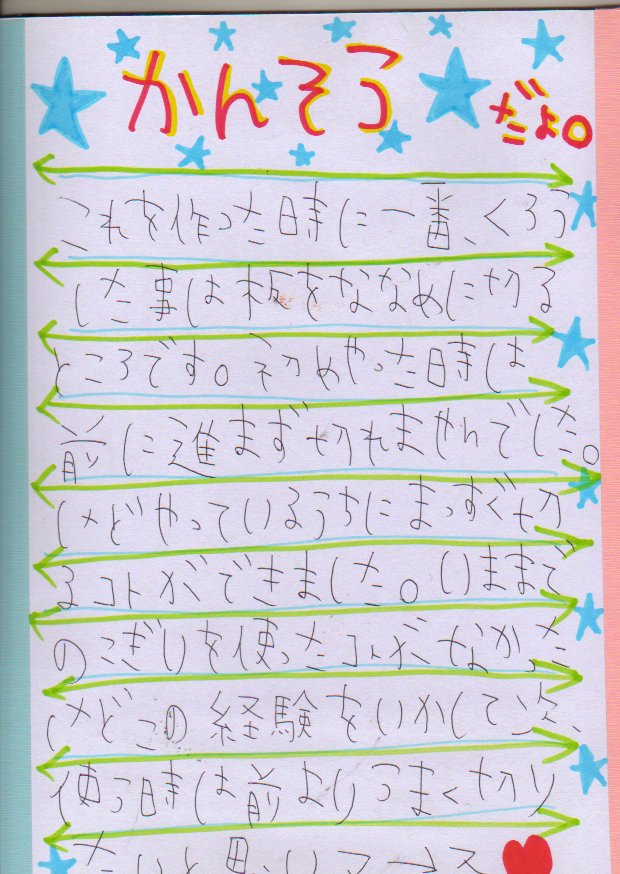 かんそう
だよ。
これを作った時に一番、くろう
した事は板をななめに切る
ところです。初めやった時は
前に進まず切れませんでした。
けどやっているうちにまっすぐ切
るコトができました。いままで
のこぎりを使ったコトがなかった
けどこの経験をいかして次、
使う時は前よりうまく切り
たいと思います